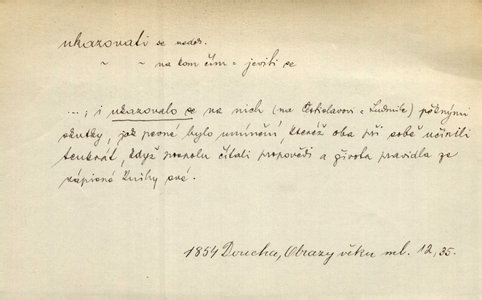 ukazovati se nedok.
~ ~ na kom čím = jeviti se
...; i ukazovalo se na nich (na Čestislavovi a Ludmile) pěknými
skutky, jak pevné bylo umínění, kteréž oba při sobě učinili
tenkrát, když spolu čítali propovědi a života pravidla ze
zápisné knihy své.
1854 Doucha, Obrazy věku ml. 12, 35.